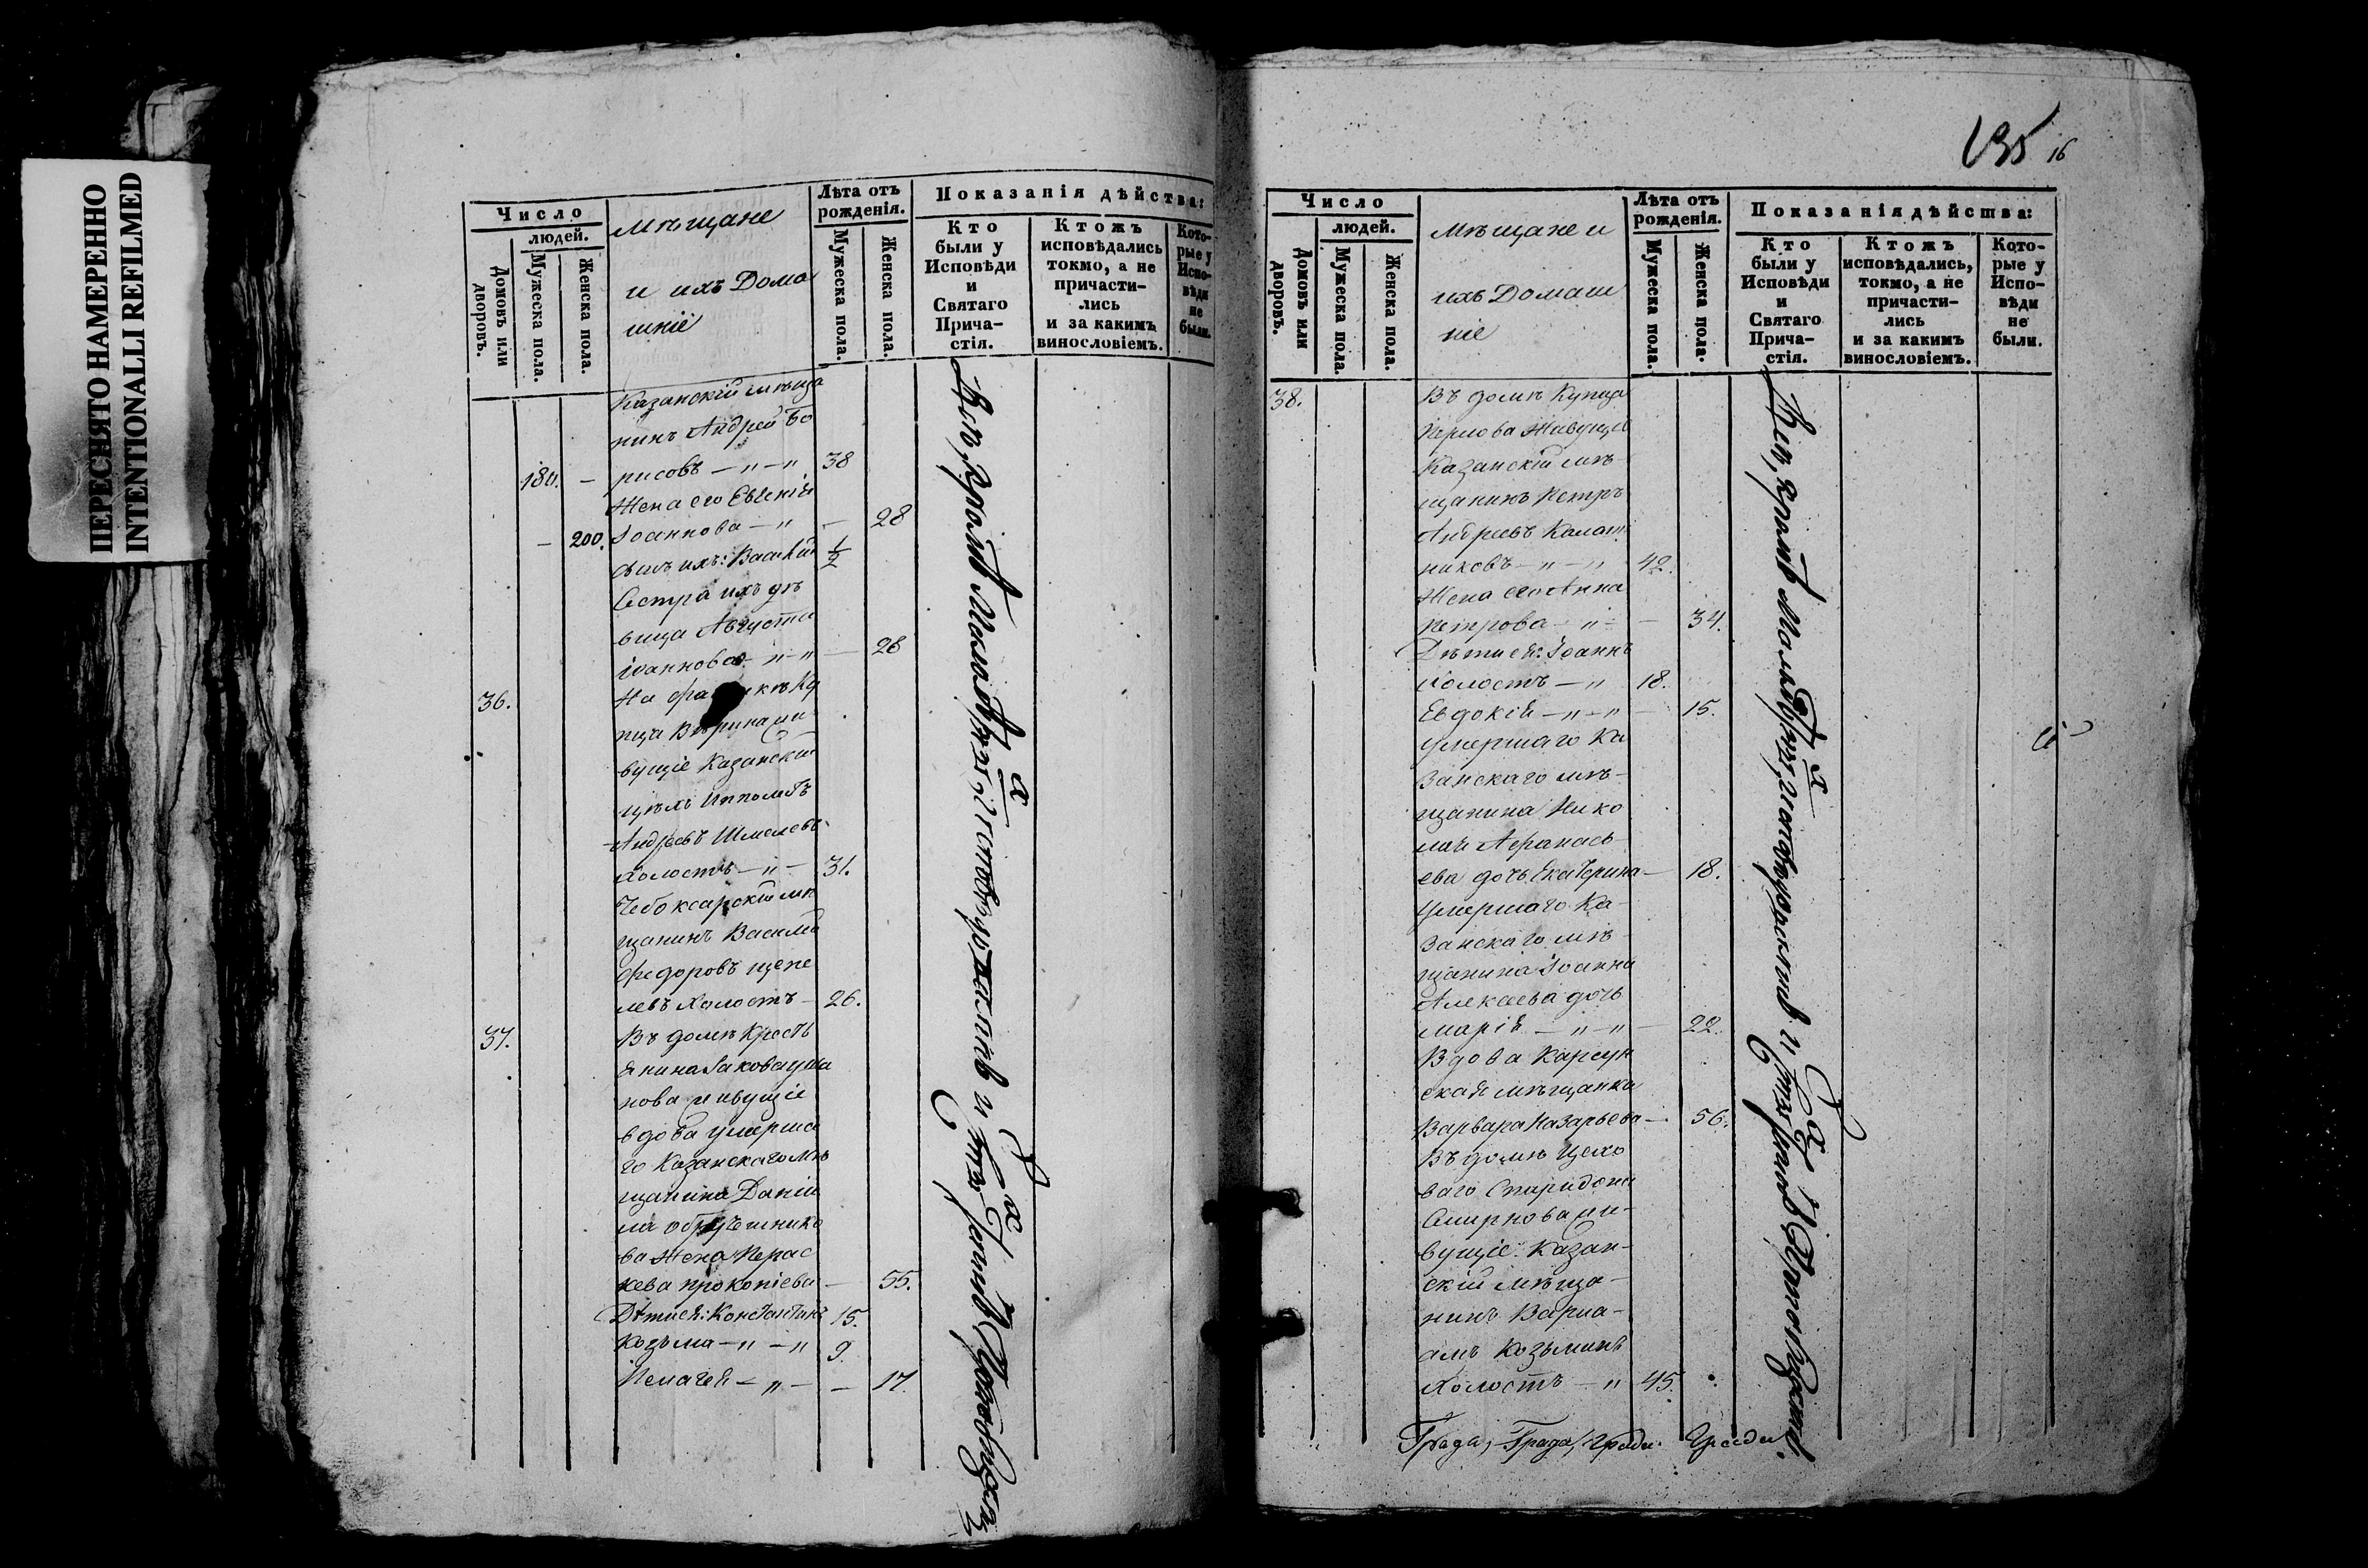 ПЕРЕСНЯТО НАМЕРЕННО
INTENTIONALLI REFILMED
Число
людей.
Домовъ или дворовъ.
Мужеска пола.
Женска пола.
мѣщане
и ихъ Дома
шніе
Лѣта отъ рожденія.
Мужеска пола.
Женска пола.
Показанія дѣйства:
Кто были у Исповѣди и Святаго Прича-стія.
Ктожъ исповѣдались токмо, а не причасти-лись и за какимъ винословіемъ.
Кото-рые у Испо-вѣди не были.
Казанскій мѣща
нинъ Андрей Бо
180. — рисовъ — „ — „ 38
Жена его Евгенія
— 200. Іоаннова — „ — 28
сынъ ихъ: Василій ½
Сестра ихъ дѣ
вица Августа
іоаннова — „ — „ — 28
36. На фабрикѣ Ку
пца Вѣрина жи
вущіе Казанскій
цѣхъ Ипполитъ
Андреевъ Шмелевъ
холостъ — „ — 31.
Чебоксарскій мѣ
щанинъ Василій
Федоровъ щепе
левъ Холостъ — 26.
37. Въ домѣ Крестъ
янина Іакова
нова живущіе
вдова умерша
го Казанскаго мѣ
щанина Даніи
ла
ва Жена Парас
кева прокопіева — 55.
Дѣти ея: Константинъ 15.
Козьма — „ — „ 9.
Пелагея — „ — — 17.
Всѣ, кромѣ малолѣтныхъ,
135 16
Число
людей.
Домовъ или дворовъ.
Мужеска пола.
Женска пола.
Мѣщане и
ихъ Домаш
ніе
Лѣта отъ рожденія.
Мужеска пола.
Женска пола.
Показанія дѣйства:
Кто были у Исповѣди и Святаго Прича-стія.
Ктожъ исповѣдались, токмо, а не причасти-лись и за какимъ винословіемъ.
Кото-рые у Испо-вѣди не были.
38. Въ домѣ Купца
Перлова Живущіе
Казанскій мѣ-
щанинъ Петръ
Андреевъ Калаш
никовъ — „ — „ 42.
Жена его Анна
Петрова — „ — — 34.
Дѣти ея: Іоаннъ
холостъ — „ 18.
Евдокія — „ — „ — 15.
умершаго Ка
занскаго мѣ-
щанина Нико
лая Афанась-
ева дочь Екатерина — 18.
Умершаго Ка-
занскаго мѣ
щанина Іоанна
Алексеева дочь
Марія — „ — „ — 22.
Вдова Карсун
ская мѣщанка
Варвара Назарьева — 56.
Въ домѣ Цехо
ваго Спиридона
Смирнова жи-
вущіе: Казан-
скій мѣща-
нинъ Варла-
амъ Козьминъ
Холостъ — „ 45.
Всѣ, кромѣ
Града, Града,